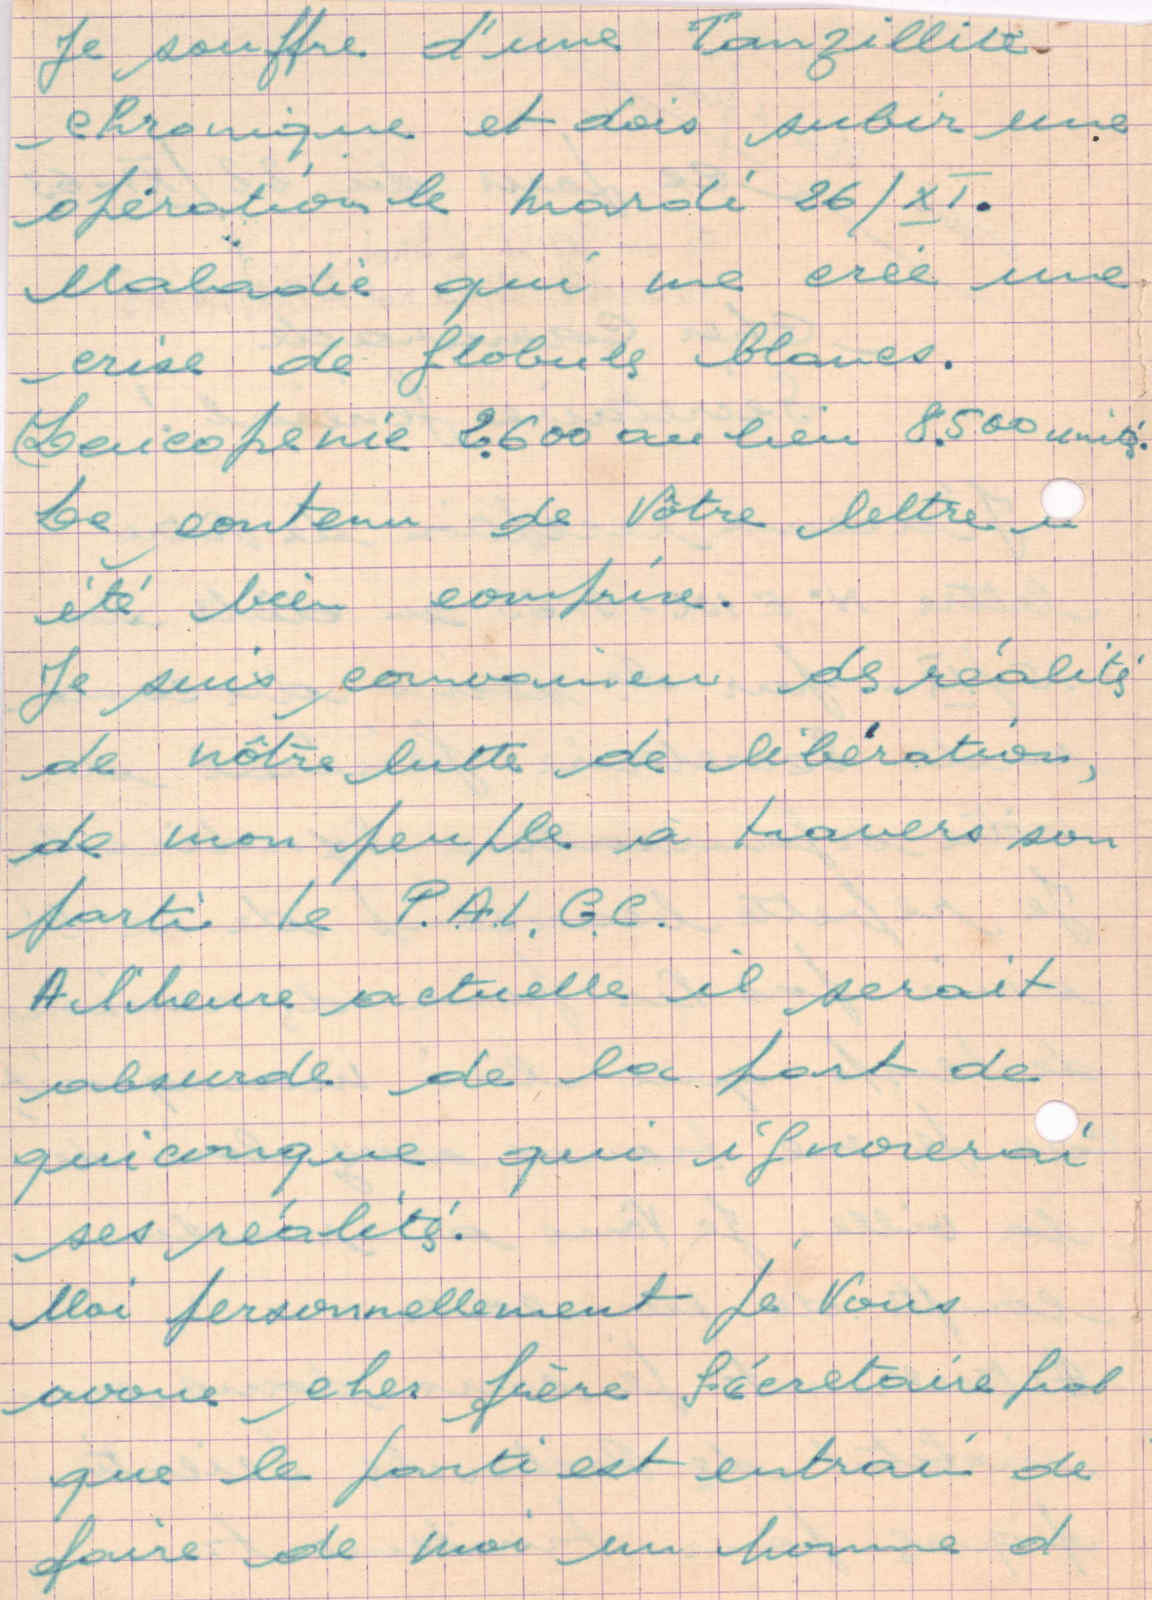 Je souffre d'une Tanzillite
chronique et dois subir une
opération le mardi 26/XI.
Maladie qui me crée une
crise de globules blancs.
Leicopenie 2.600 au lieu 8.500 unités.
Le contenu de Vôtre lettre a
été bien comprise.
Je suis convaincu des réalités
de nôtre lutte de libération,
de mon peuple a travers son
parti le P.A.I.G.C.
A l'heure actuelle il serait
absurde de la part de
quiconque qui ignorerai
ses réalités.
Moi personnellement je Vous
avoue cher frère Sécretaire
que le parti est entrain de
faire de moi un homme d